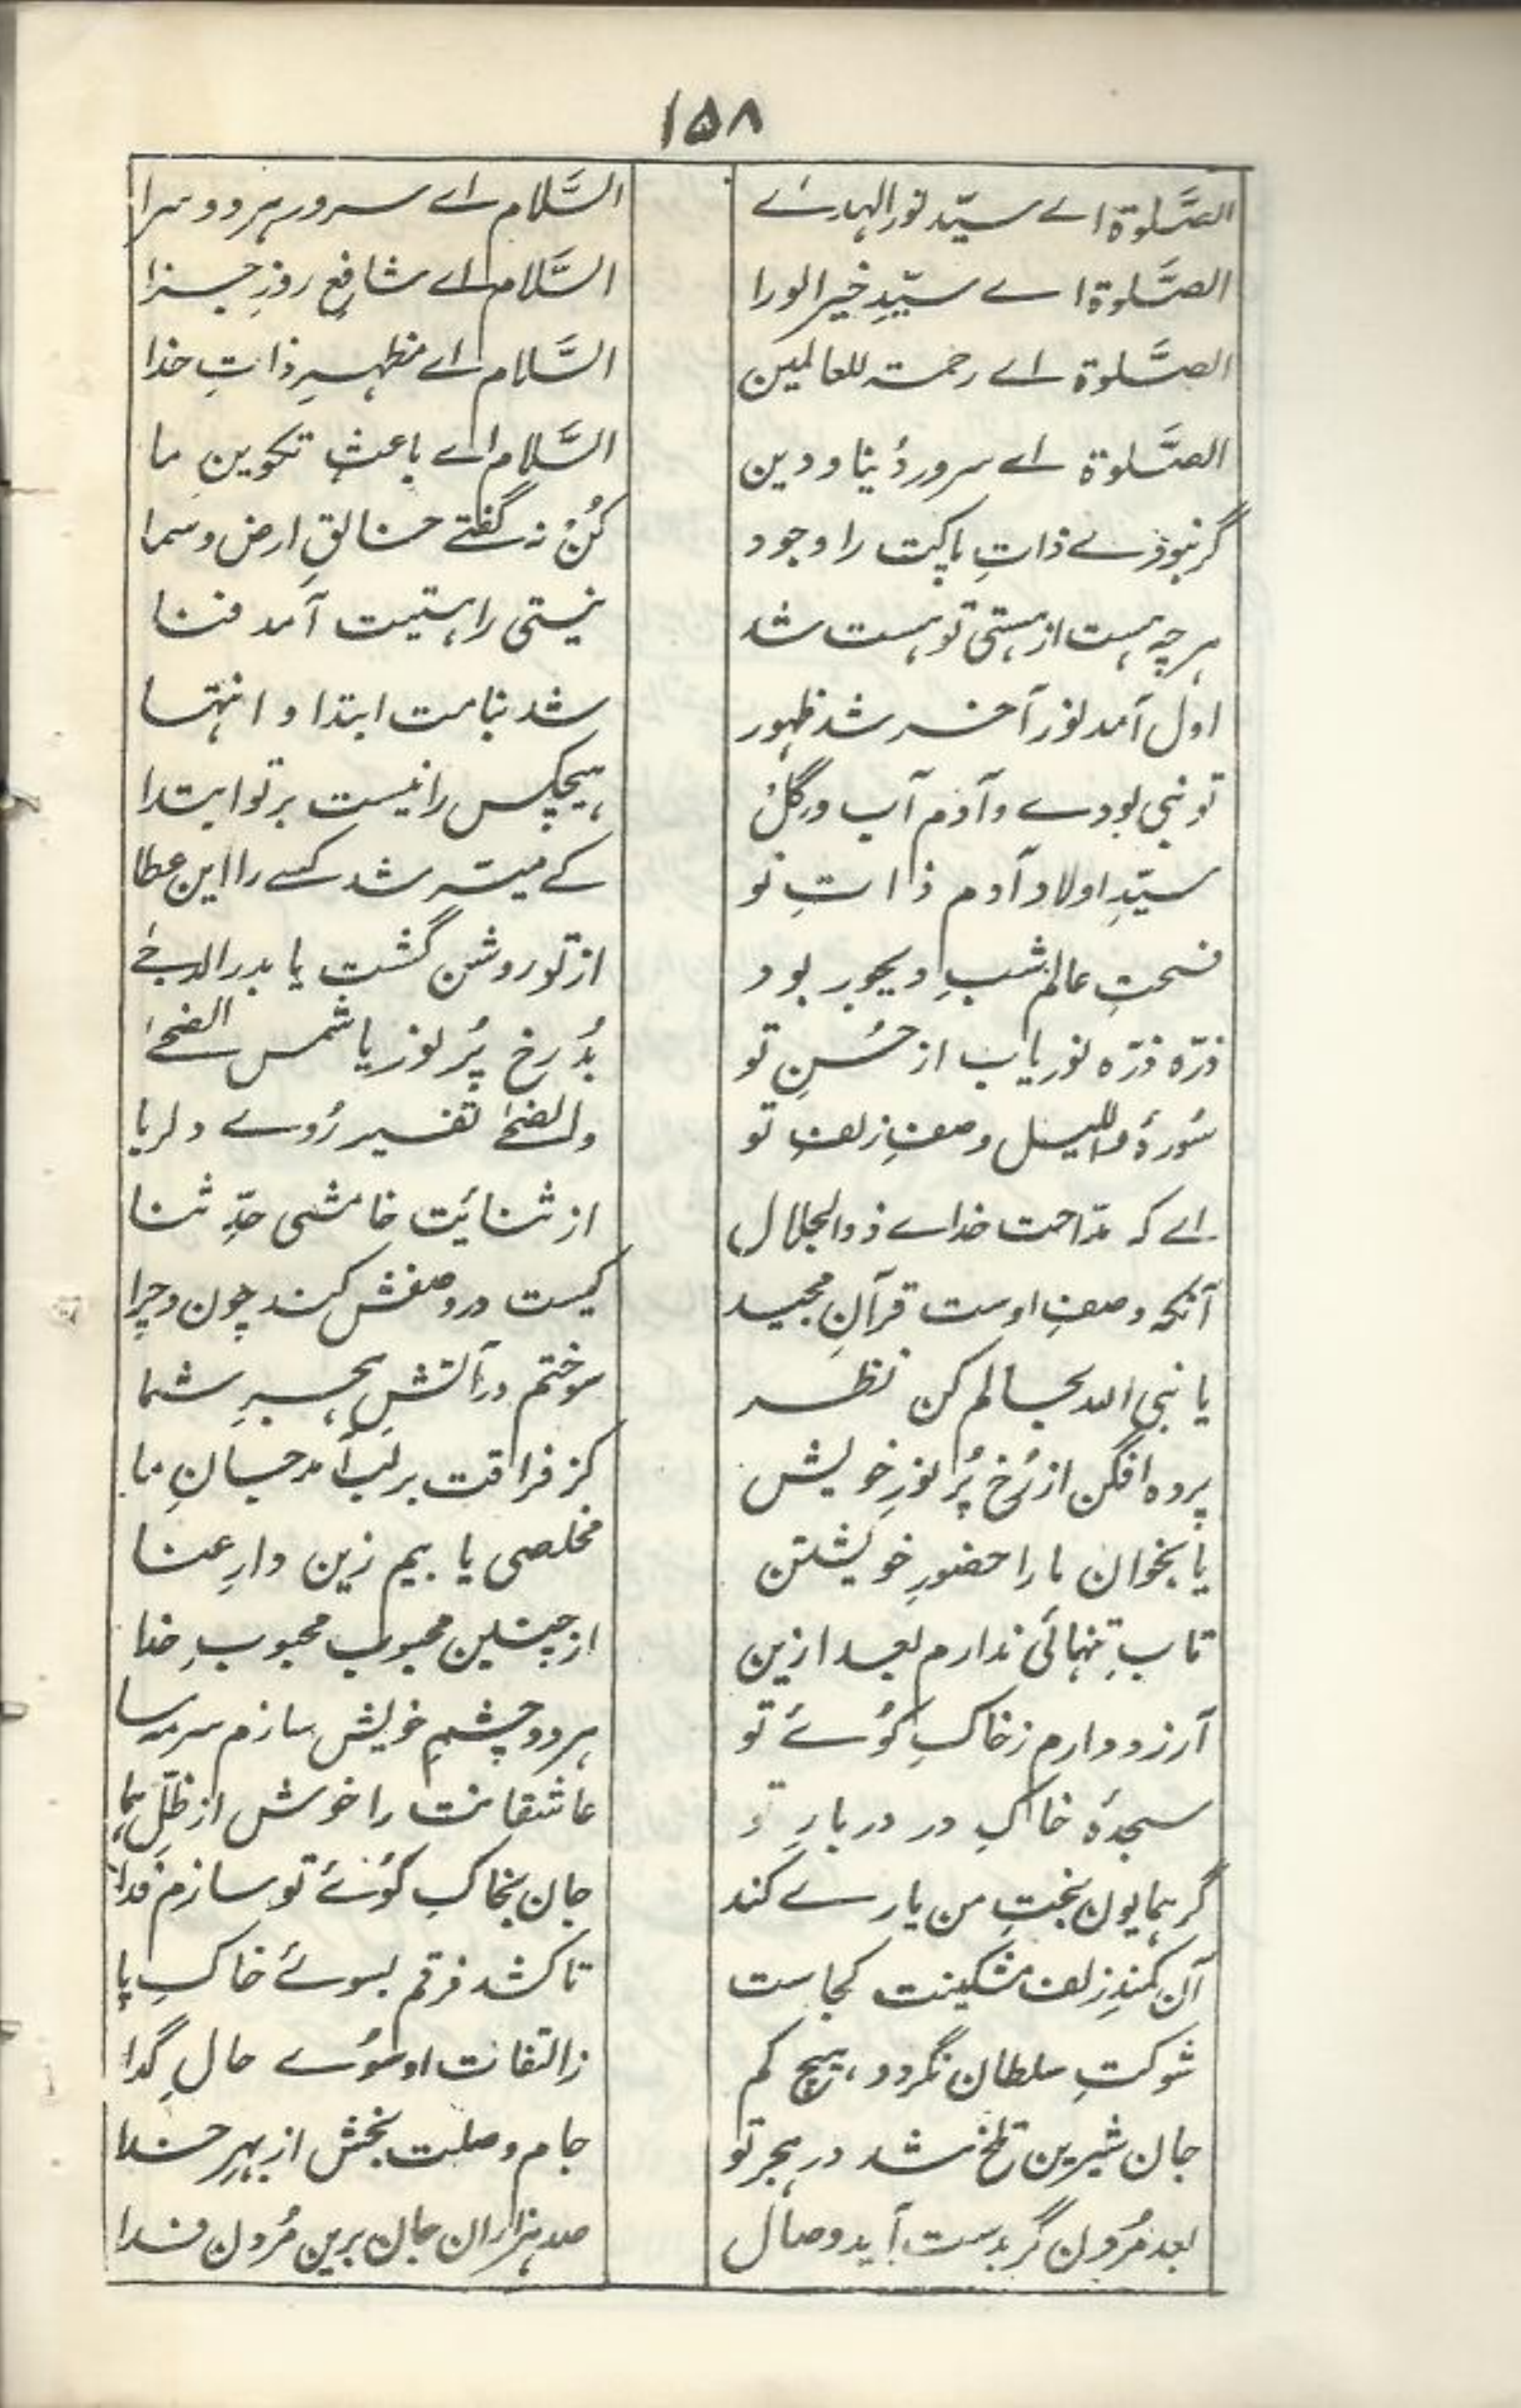 ۱۵۸
الصَّلوٰة اے سیّد نور الہدےٰ السَّلام اے سرور ہر دو سرا
الصَّلوٰة اے سیّدِ خیر الورا السَّلام اے شافعِ روزِ جزا
الصَّلوٰة اے رحمتہ للعالمین السَّلام اے مظہرِ ذاتِ خدا
الصَّلوٰة اے سرور دُنیا و دین السَّلام اے باعثِ تکوینِ ما
گر نبودے ذاتِ پاکت را وجود کُنْ نہ گفتے خالقِ ارض و سما
ہر چہ ہست از ہستی تو ہست شد نیستی را ہستیت آمد فنا
اول آمد نور آخر شد ظہور شد بنامت ابتدا و انتہا
تو نبی بودے و آدم آب و گِلْ ہیچکس را نیست بر تو ابتدا
سیّدِ اولاد آدم ذاتِ تو کے میسّر شد کسے را این عطا
فسحتِ عالم شبِ دیجور بود از تو روشن گشت یا بدر الدجےٰ
ذرّہ ذرّہ نور یاب از حُسنِ تو بُد رخ پُر نور یا شمس الضحےٰ
سُورۂ واللیل وصفِ زلفِ تو والضحےٰ تفسیر رُوے دلربا
اے کہ مدّاحت خداے ذوالجلال از ثنائیت خامشی حدِّ ثنا
آنکہ وصفِ اوست قرآنِ مجید کیست در وصفش کند چون و چرا
یا نبی اللہ بحالم کن نظر سوختم در آتشِ ہجرِ شما
پردہ افگن از رُخ پُر نورِ خویش کز فراقت بر لب آمد جانِ ما
یا بخوان ما را حضورِ خویشتن مخلصی یابیم زین دارِ عنا
تابِ تنہائی ندارم بعد ازین از چنین محبوب محبوبِ خدا
آرزو دارم ز خاکِ کُوئے تو ہر دو چشمِ خویش سازم سرمہ سا
سجدۂ خاکِ در دربارِ تو عاشقانت را خوش از ظلِّ ہما
گر ہمایون بختِ من یارے کند جان بخاکِ کُوئے تو سازم فدا
آن کمندِ زلف مشکینت کجاست تا کشد فرقم بسوئے خاکِ پا
شوکتِ سلطان نگردد ہیچ کم ز التفات او سُوے حالِ گدا
جان شیرین تلخ شد در ہجر تو جام وصلت بخش از بہرِ خدا
بعد مُردن گر بدست آید وصال صد ہزاران جان برین مُردن فدا